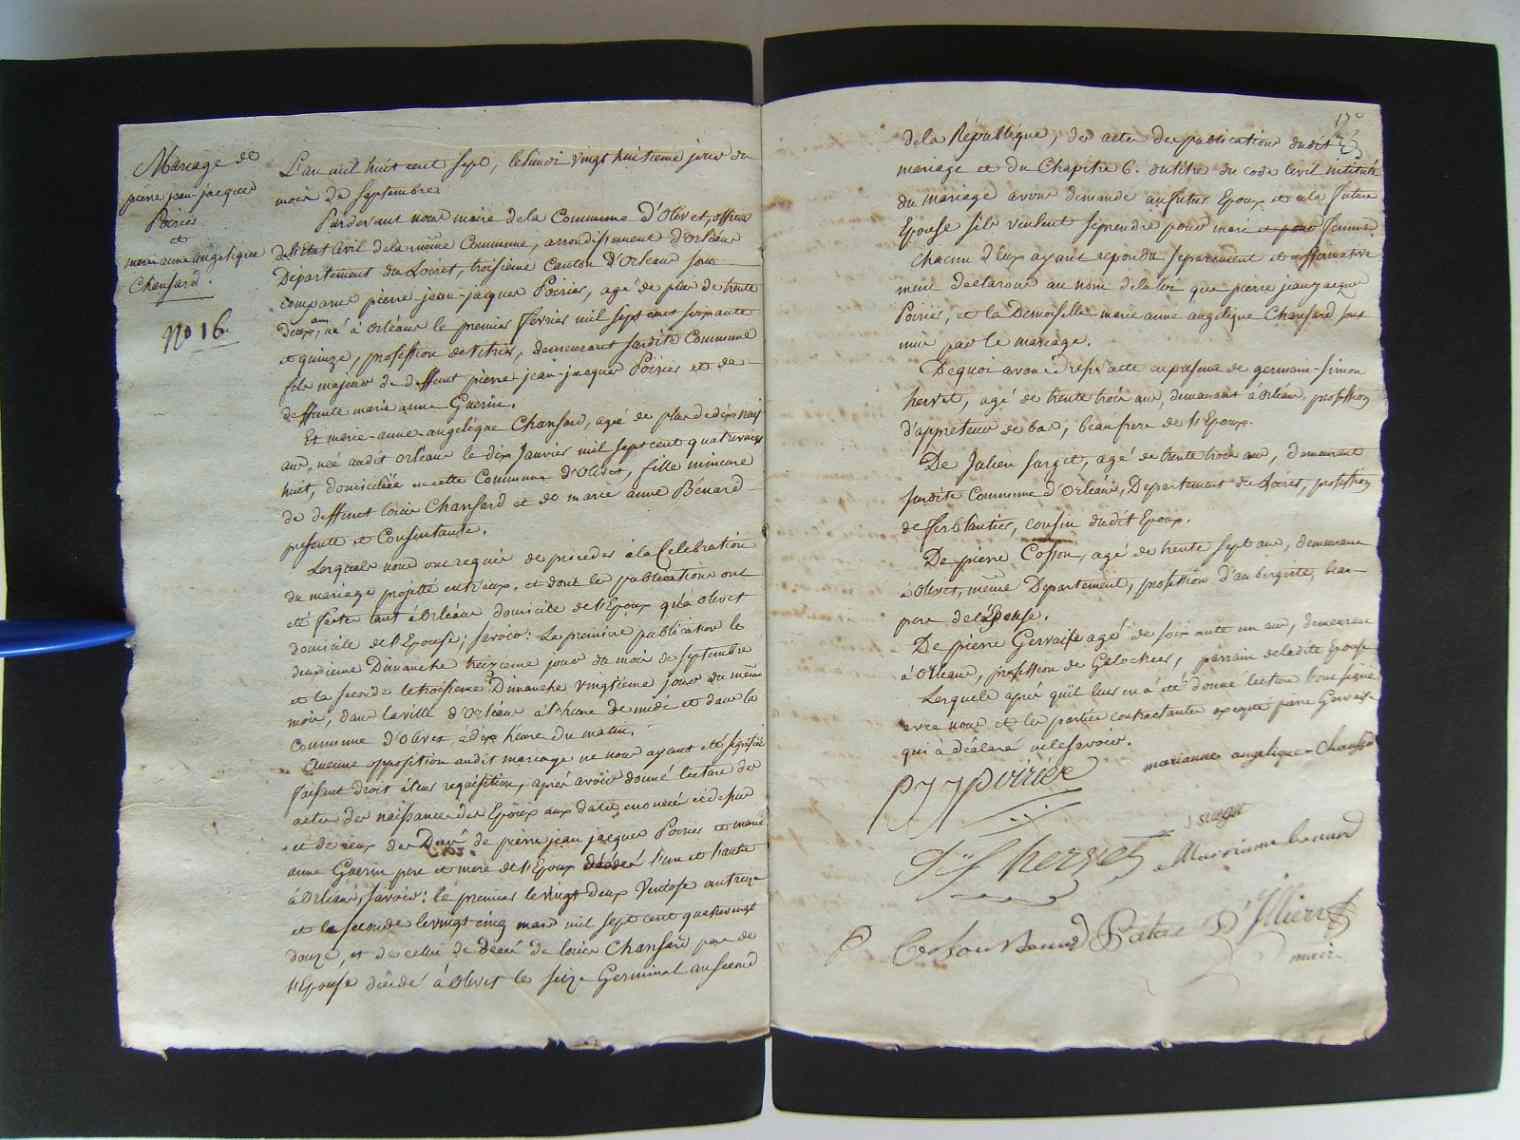 Mariage de
pierre jean-jacques
Poirier
et
marie anne angelique
Chansard.
No 16.
L'an mil huit cent sept, le lundi vingt huitieme jour du
mois de septembre
Pardevant nous maire de la Commune d'Olivet, officier
de l'Etat Civil de la même Commune, arrondissement d'orléans
Département du Loiret, troisième Canton d'Orleans sont
comparus pierre-jean-jacques Poirier, agé de plus de trente
deux ans, né à orléans le premier fevrier mil sept cent soixante
et quinze, profession de vitrier, demeurant susdite Commune
fils majeur de deffunt pierre-jean-jacques Poirier et de
deffunte marie anne Guerin.
Et marie-anne-angelique Chansard, agée de plus de dix neuf
ans, née audit orléans le dix Janvier mil sept cent quatrevingt
huit, domiciliée en cette Commune d'Olivet, fille mineure
de deffunt Chansard et de marie anne Bénard
présente et Consentante.
Lesquels nous ont requis de proceder à la Celebration
du mariage projetté entr'eux, et dont les publications ont
été faites tant à Orléans domicile de l'Epoux qu'à Olivet
domicile de l'Epouse; savoir: La premiere publication le
deuxieme Dimanche treizieme jour du mois de septembre
et la seconde le troisieme Dimanche vingtieme jour du même
mois, dans la ville d'Orléans à l'heure de midi et dans la
Commune d'Olivet, à dix heures du matin.
Aucune opposition audit mariage ne nous ayant été signifiée
faisant droit à leur requisition, après avoir donné lecture des
actes de naissance des Epoux aux dates enoncées cidessus
et de ceux de Décès de pierre jean jacques Poirier et marie
anne Guerin pere et mere de l'Epoux décédés l'un et l'autre
à Orléans, savoir: le premier le vingt deux Ventose an treize
et la seconde le vingt cinq mars mil sept cent quatrevingt
douze, et de celui de Décès de Chansard pere de
l'Epouse décédé à Olivet le seize Germinal an second
de la République, des actes de publication dudit
mariage et du Chapitre 6. du titre du code Civil intitulé
du mariage avons demandé au futur Epoux et a la future
Epouse s'ils veulent se prendre pour mari et pour femme
chacun d'eux ayant repondu separement et affirmative
ment declarons au nom de la loi que pierre jean jacques
Poirier, et la Demoiselle marie anne angelique Chansard sont
unis par le mariage.
De quoi avons dressé acte en presence de germain-simon
hervet, agé de trente trois ans, demeurant à Orléans, profession
d'appreteur de bas, beaufrere de l'Epoux.
De Julien surget, agé de trente trois ans, demeurant
susdite Commune d'Orléans, Departement du Loiret, profession
de ferblantier, cousin dudit Epoux.
De pierre Cosson, agé de trente sept ans, demeurant
à Olivet, même Departement, profession d'aubergiste, beau-
pere de l'Epouse.
De pierre Gervaise agé de soixante un ans, demeurant
à Orléans, profession de parrain de ladite Epouse
Lesquels apres qu'il leur en a été donné lecture l'ont signé
avec nous et les parties contractantes excepté pierre Gervaise
qui à déclaré ne le savoir.
P J J poirier
marianne angelique Chansard
J surget
hervet
Marianne benard
Cosson
Patas D'Illiers
maire